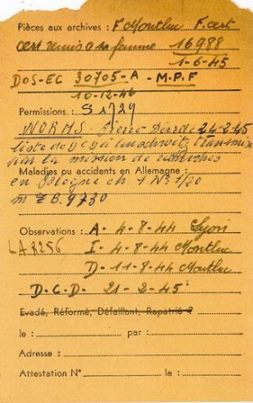 Pièces aux archives : F Montluc F. cert
cert remis a sa femme 16988
1-6-45
DOS-EC 30705-A - M.P.F
10-12-46
Permissions : S 1729
WORMS - 24-2-45
liste de à Auschwitz transmise
par la mission de recherches
Maladies ou accidents en Allemagne :
en Pologne ch 1 N° 1/30
m Z B. 9730
Observations : A - 4-8-44 Lyon
LA 8256 I - 4-8-44 Montluc
D - 11-8-44 Montluc
D.C.D - 21-2-45
Evadé, Réformé, Défaillant, Rapatrié ?
le : par :
Adresse :
Attestation N° le :